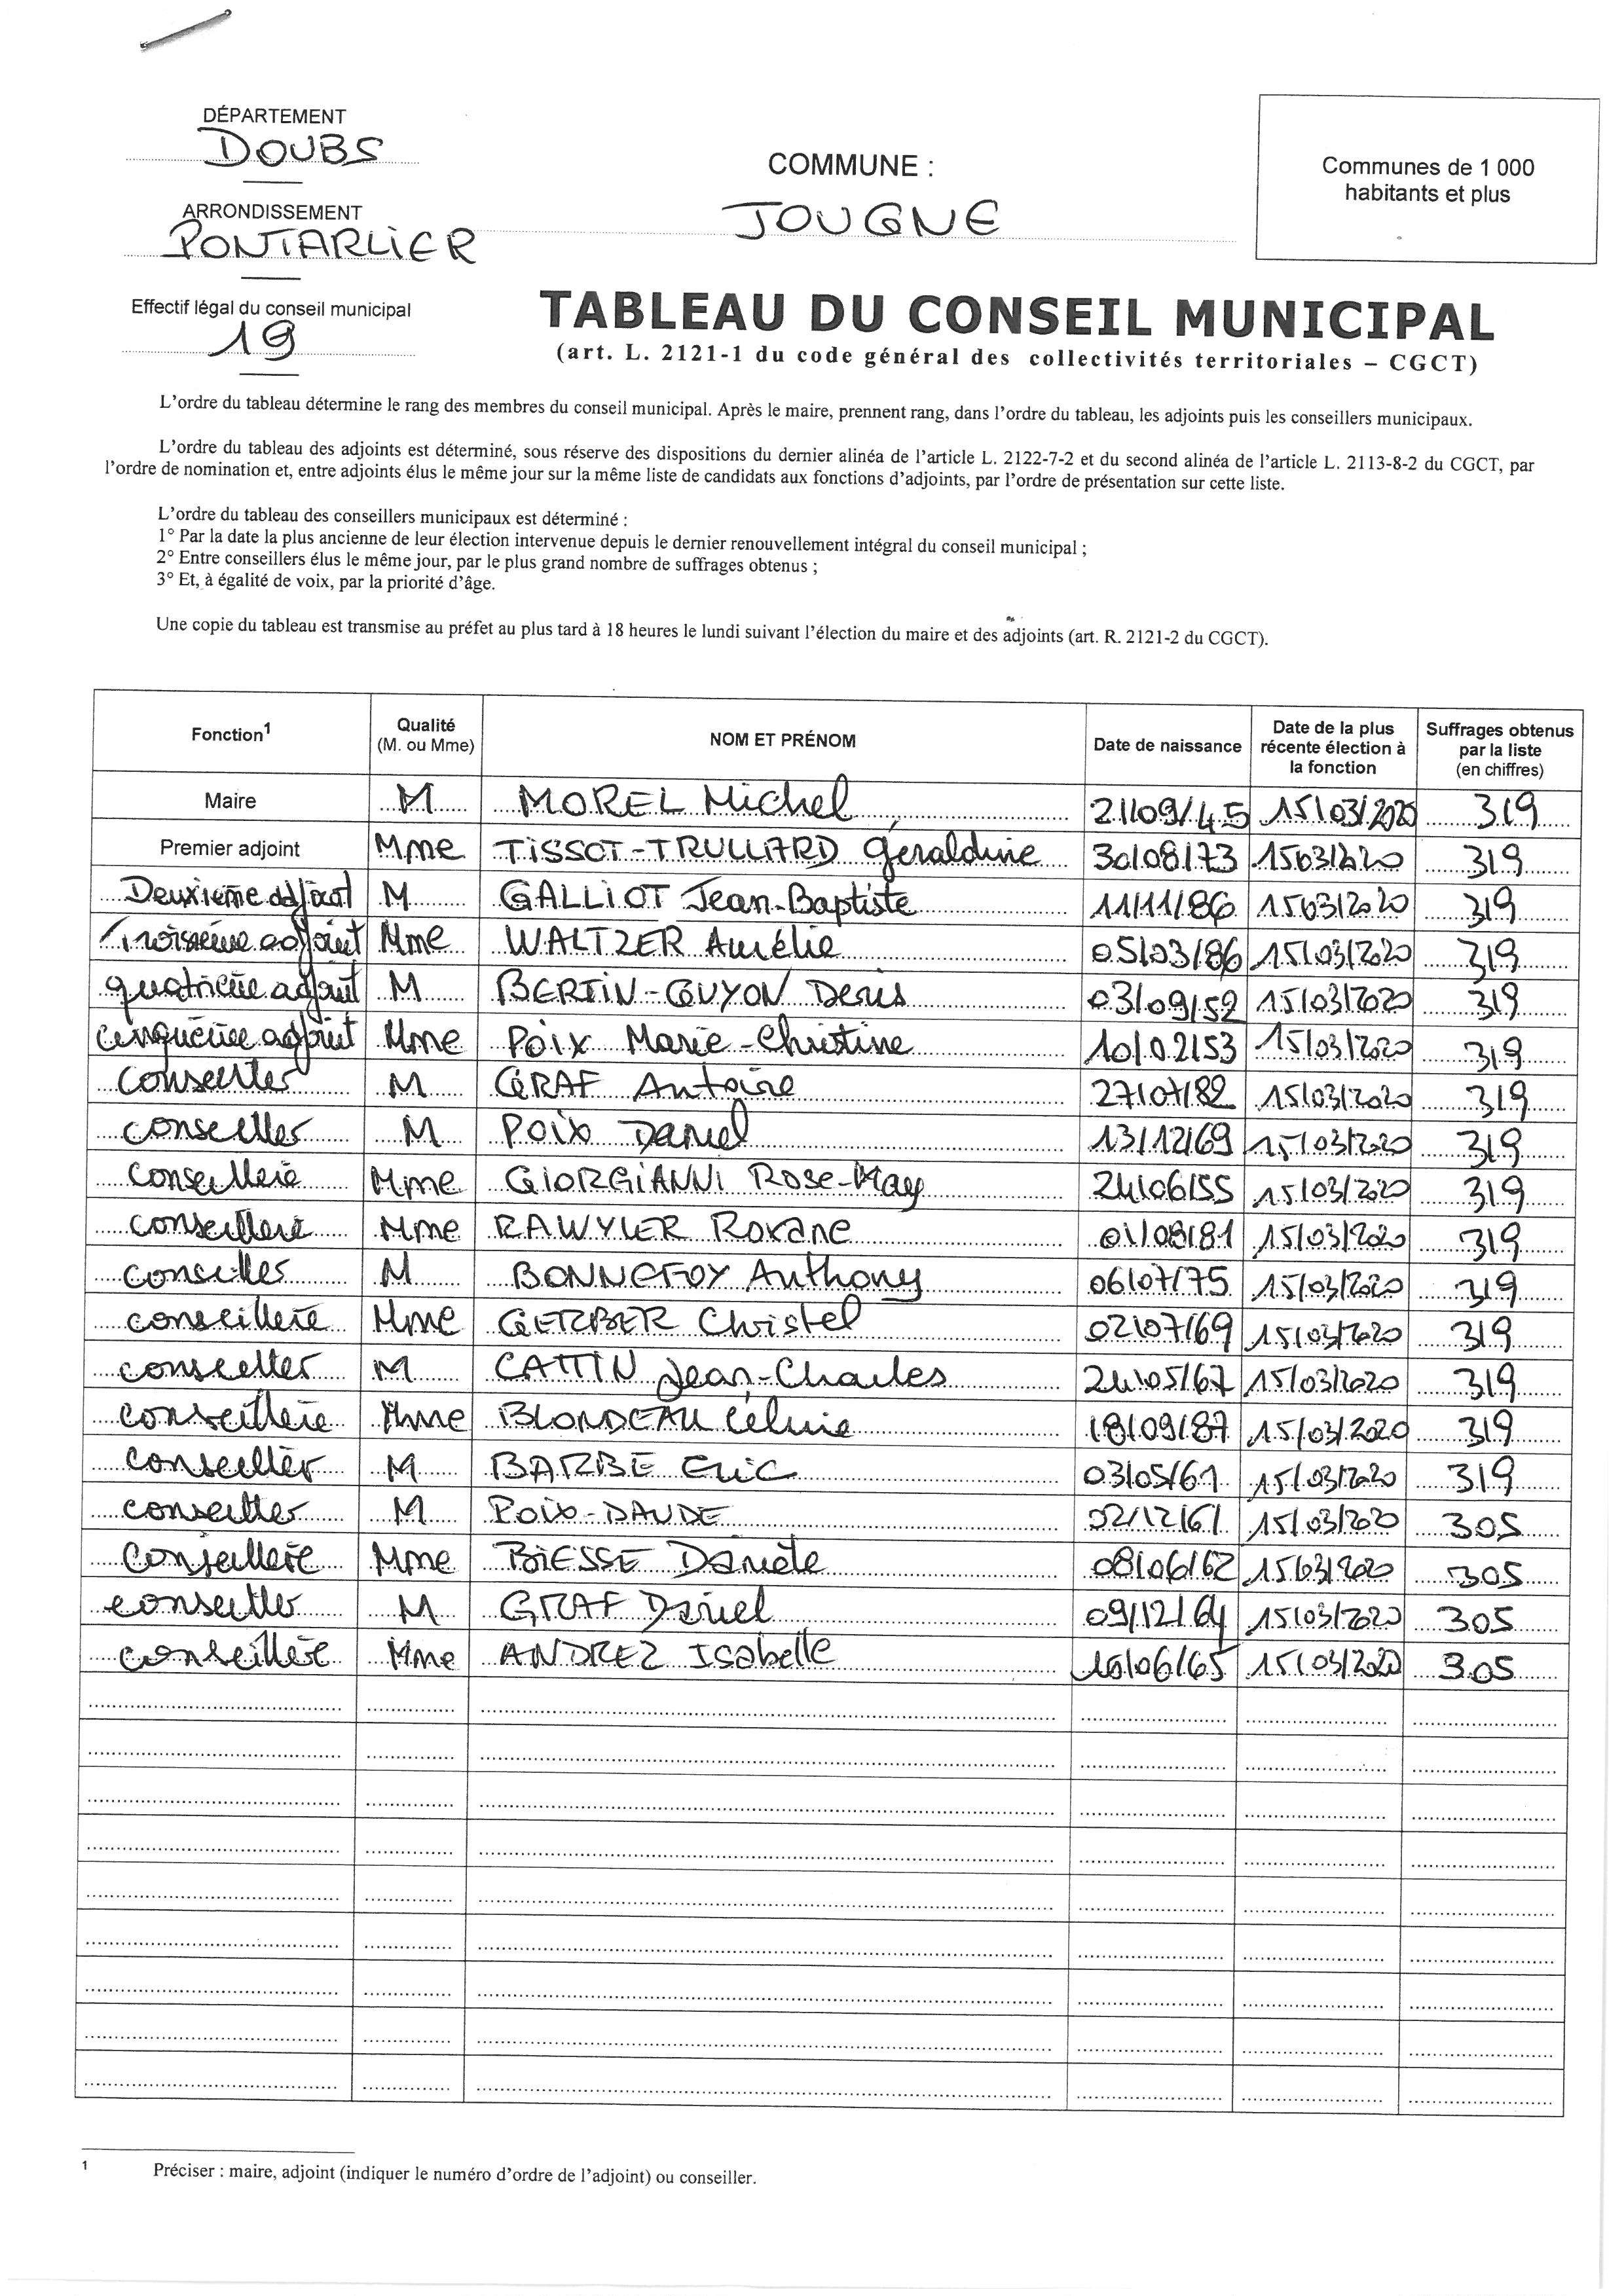 DÉPARTEMENT
DOUBS
ARRONDISSEMENT
PONTARLIER
Effectif légal du conseil municipal
19
COMMUNE :
JOUGNE
Communes de 1 000
habitants et plus
TABLEAU DU CONSEIL MUNICIPAL
(art. L. 2121-1 du code général des collectivités territoriales – CGCT)
L'ordre du tableau détermine le rang des membres du conseil municipal. Après le maire, prennent rang, dans l'ordre du tableau, les adjoints puis les conseillers municipaux.
L'ordre du tableau des adjoints est déterminé, sous réserve des dispositions du dernier alinéa de l'article L. 2122-7-2 et du second alinéa de l'article L. 2113-8-2 du CGCT, par
l'ordre de nomination et, entre adjoints élus le même jour sur la même liste de candidats aux fonctions d'adjoints, par l'ordre de présentation sur cette liste.
L'ordre du tableau des conseillers municipaux est déterminé :
1° Par la date la plus ancienne de leur élection intervenue depuis le dernier renouvellement intégral du conseil municipal ;
2° Entre conseillers élus le même jour, par le plus grand nombre de suffrages obtenus ;
3° Et, à égalité de voix, par la priorité d'âge.
Une copie du tableau est transmise au préfet au plus tard à 18 heures le lundi suivant l'élection du maire et des adjoints (art. R. 2121-2 du CGCT).
Fonction1 Qualité (M. ou Mme) NOM ET PRÉNOM Date de naissance Date de la plus récente élection à la fonction Suffrages obtenus par la liste (en chiffres)
Maire M MOREL Michel 21/09/45 15/03/2020 319
Premier adjoint Mme TISSOT-TRULLARD Géraldine 30/08/73 15/03/2020 319
Deuxième adjoint M GALLIOT Jean-Baptiste 11/11/86 15/03/2020 319
Troisième adjoint Mme WALTZER Aurélie 05/03/86 15/03/2020 319
quatrième adjoint M BERTIN-GUYON Denis 03/09/52 15/03/2020 319
cinquième adjoint Mme POIX Marie-Christine 10/02/53 15/03/2020 319
conseiller M GRAF Antoine 27/07/82 15/03/2020 319
conseiller M POIX Daniel 13/12/69 15/03/2020 319
conseillère Mme GIORGIANNI Rose-May 24/06/55 15/03/2020 319
conseillère Mme RAWYLER Roxane 01/08/81 15/03/2020 319
conseiller M BONNEFOY Anthony 06/07/75 15/03/2020 319
conseillère Mme GERBER Christel 02/07/69 15/03/2020 319
conseiller M CATTIN Jean-Charles 24/05/67 15/03/2020 319
conseillère Mme BLONDEAU Céline 18/09/87 15/03/2020 319
conseiller M BARBE Eric 03/05/61 15/03/2020 319
conseiller M POIX-DAUDE 02/12/61 15/03/2020 305
conseillère Mme BIESSE Danièle 08/06/62 15/03/2020 305
conseiller M GRAF Daniel 09/12/64 15/03/2020 305
conseillère Mme ANDREZ Isabelle 15/03/2020 305
1 Préciser : maire, adjoint (indiquer le numéro d'ordre de l'adjoint) ou conseiller.